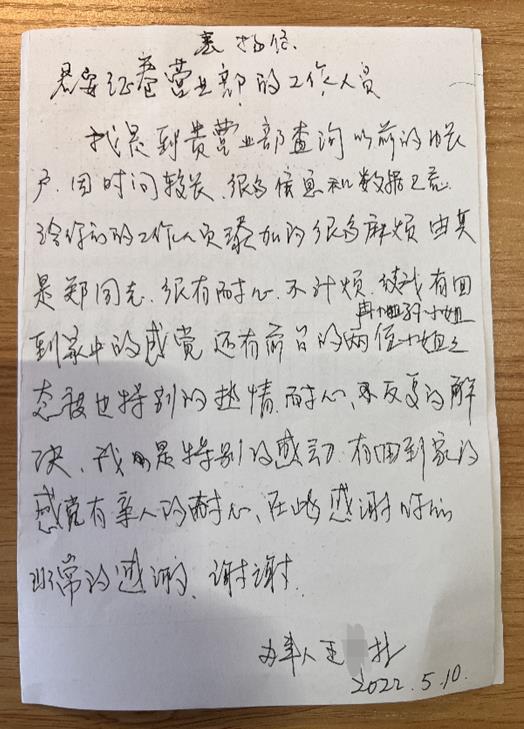 表扬信.
君安证卷营业部的工作人员
我是到贵营业部查询以前的帐
户.因时间较长.很多信息和数据
给你们的工作人员添加的很多麻烦 由其
是郑同志.很有耐心.不计烦.使我有回
到家中的感觉 还有前台的两位小姐
态度也特别的热情.耐心.反复的解
决.我 是特别的感动.有回到家的
感觉有亲人的耐心、在此感谢你们
非常的感谢.谢谢.
办事人 王
2022.5.10.